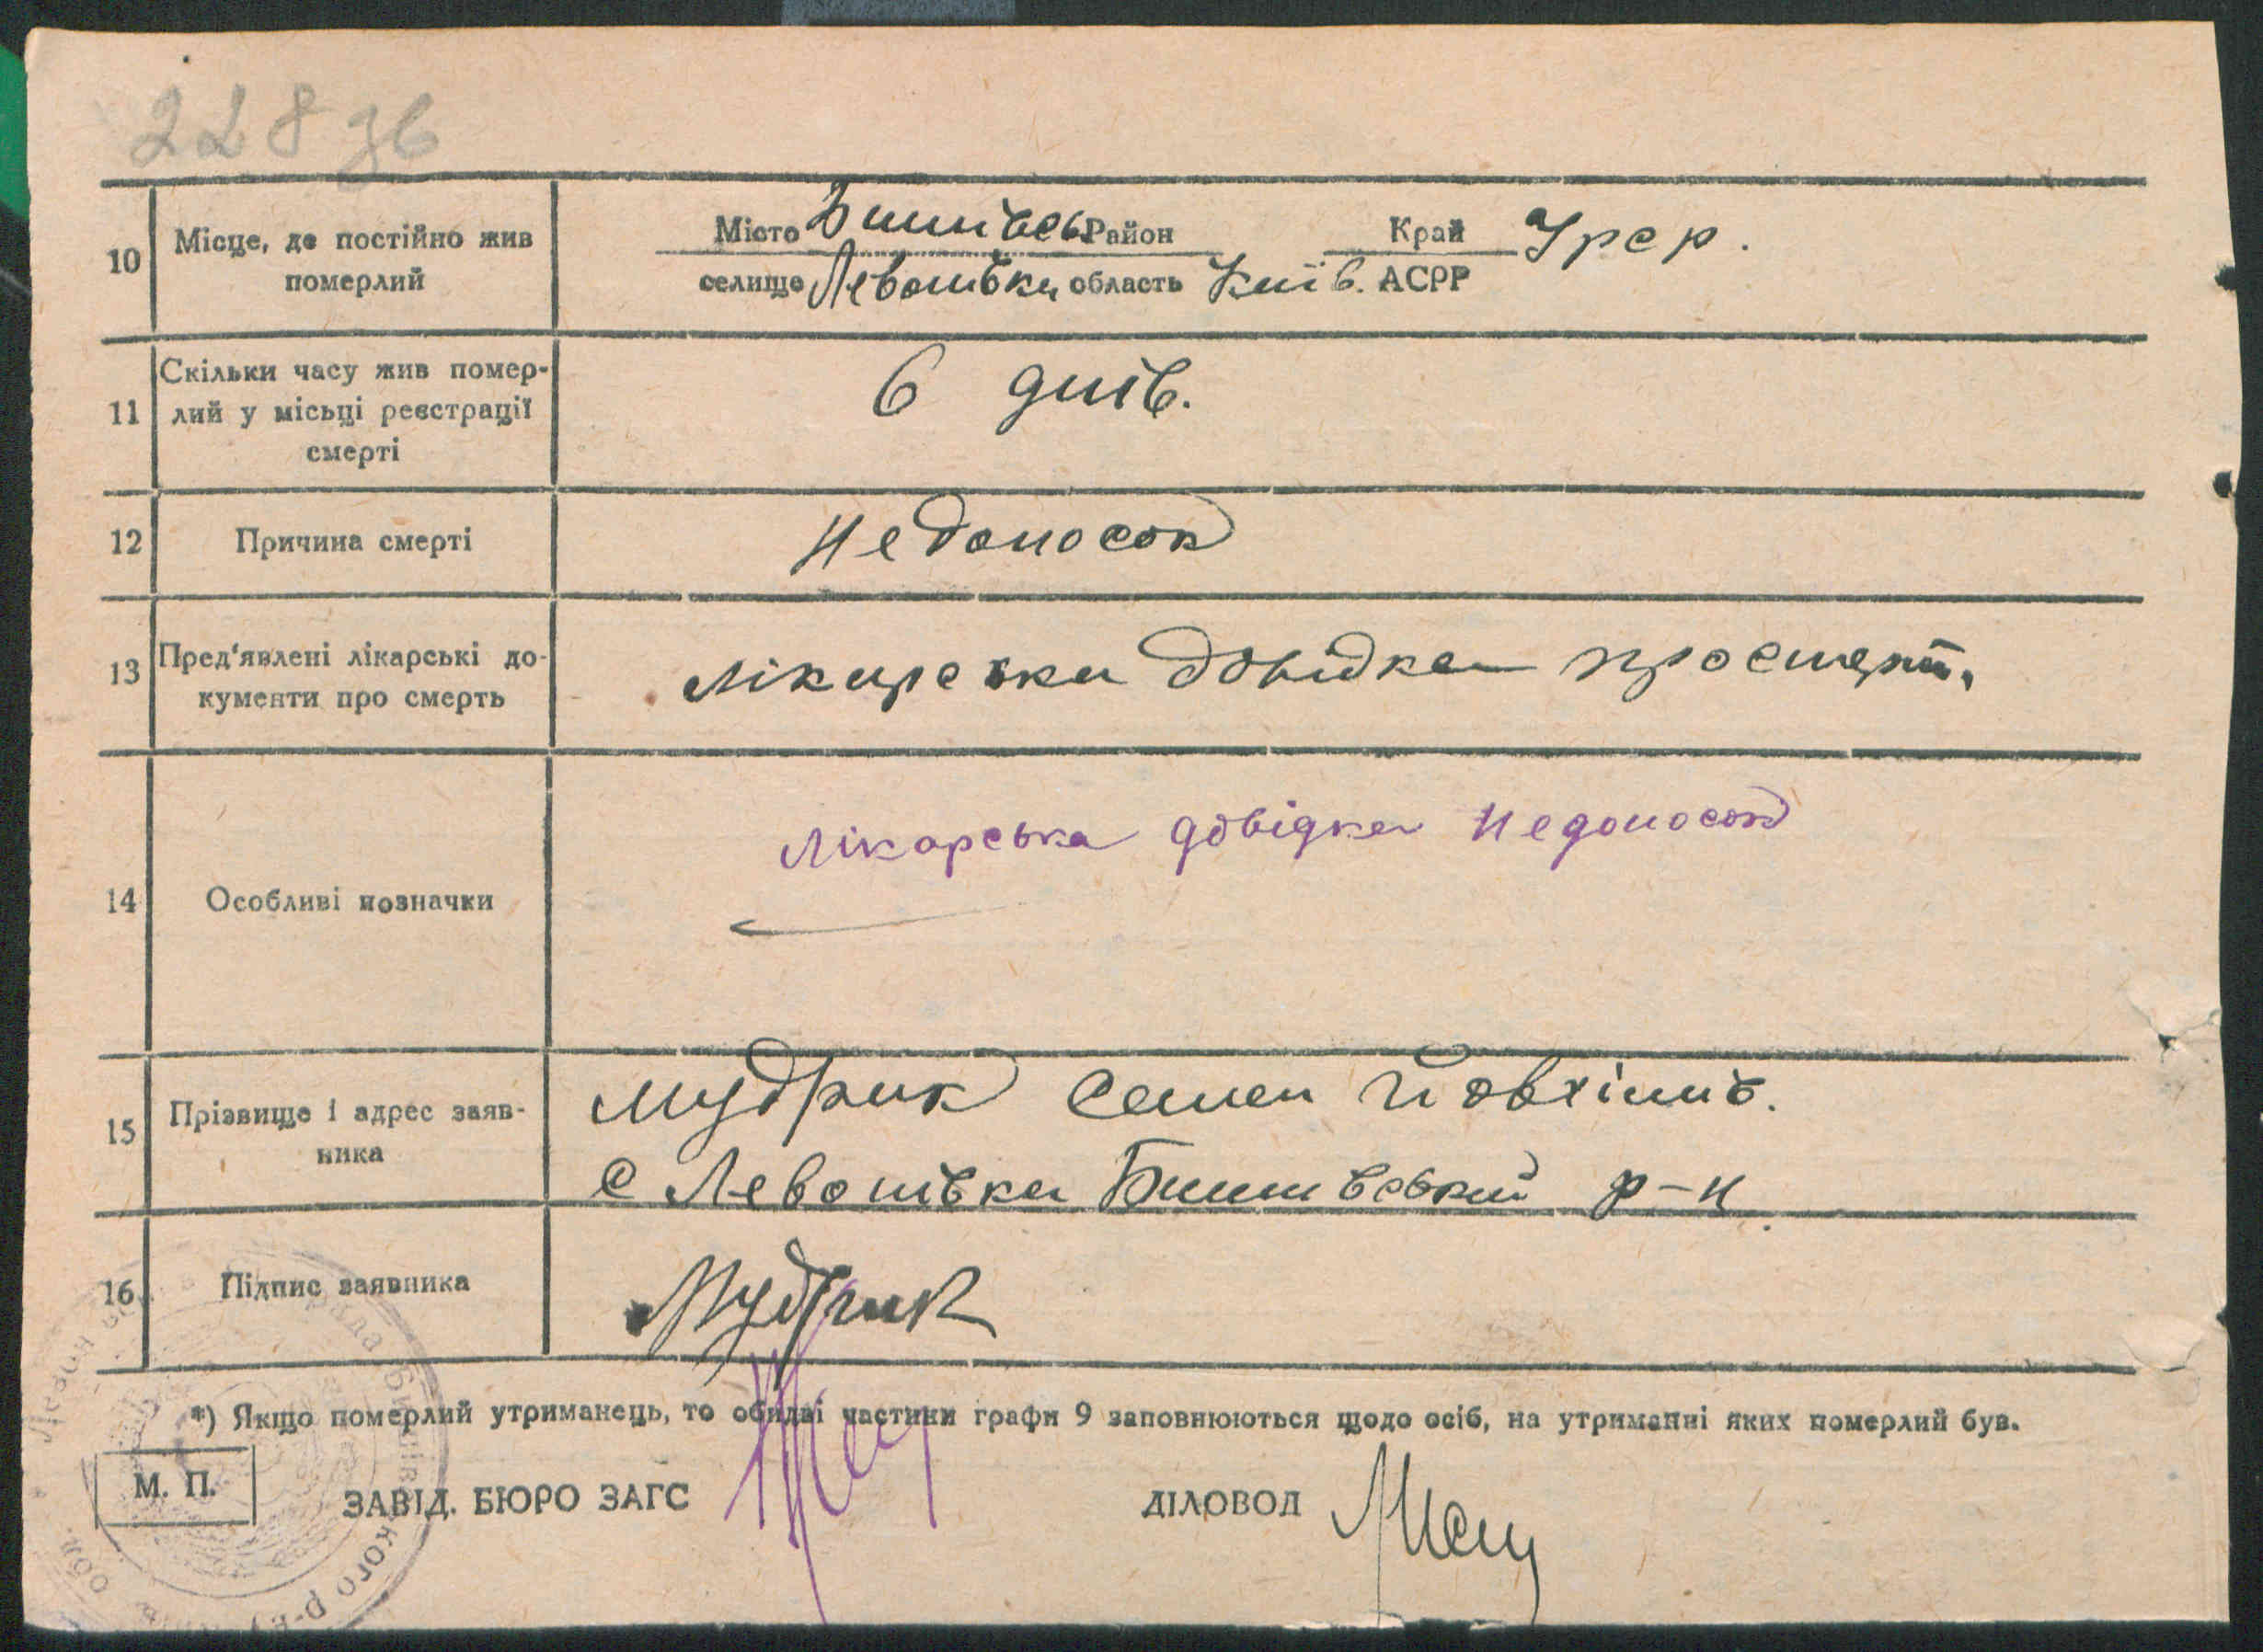 228 зв
10 Місце, де постійно жив померлий
Місто Бишівсь Район Край Урср.
селище Левонівка область Київ. АСРР
11 Скільки часу жив помер-
лий у місьці реєстрації
смерті
6 днів.
12 Причина смерті
Недоносок
13 Пред'явлені лікарські до-
кументи про смерть
Лікарська довідка про смерт.
14 Особливі позначки
Лікарська довідка Недоносок
15 Прізвище і адрес заяв-
ника
Мудрик Семен Йовхімів.
с Левонівка Бишівський р-н
16 Підпис заявника
Мудрик
*) Якщо померлий утриманець, то обидві частини графи 9 заповнюються щодо осіб, на утриманні яких померлий був.
М. П.
ЗАВІД. БЮРО ЗАГС
ДІЛОВОД